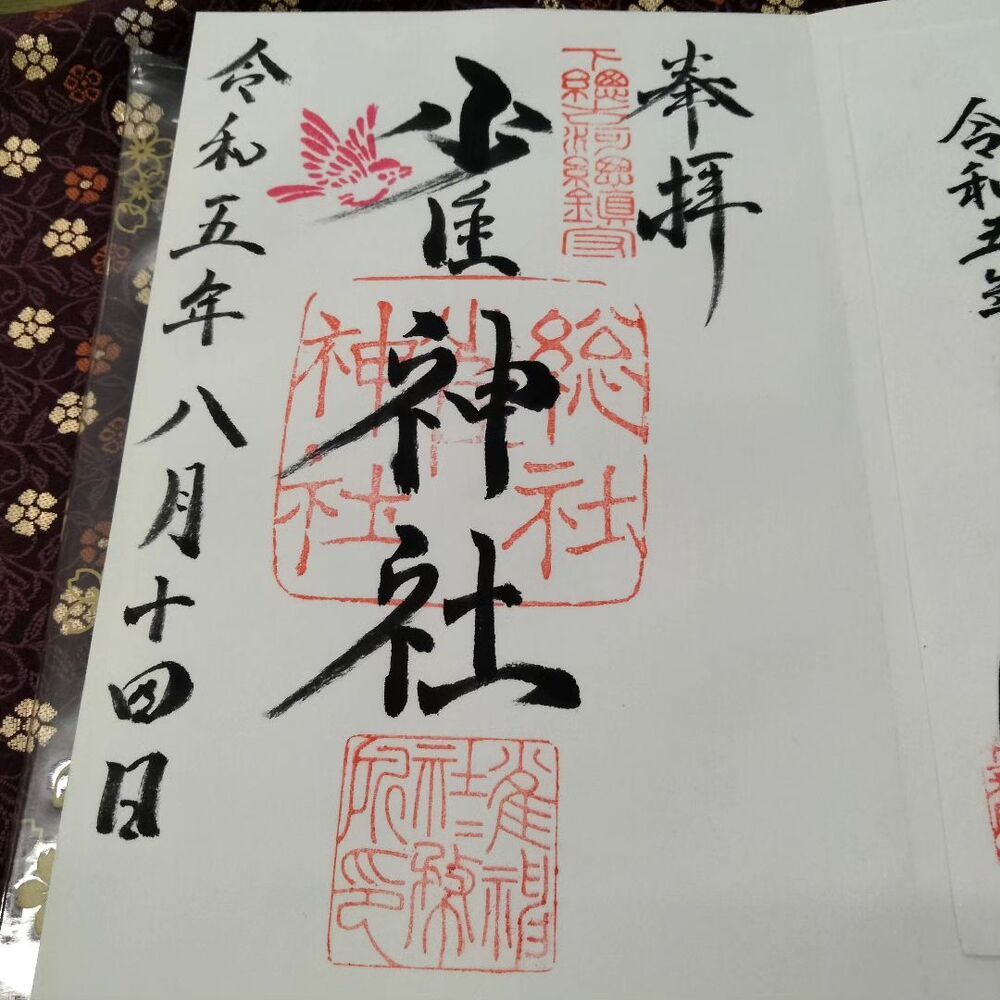 奉拝
下総古河
鎮守
雀神社
総社
雀
神社
雀神
社務
所印
令和五年八月十四日
令和五年